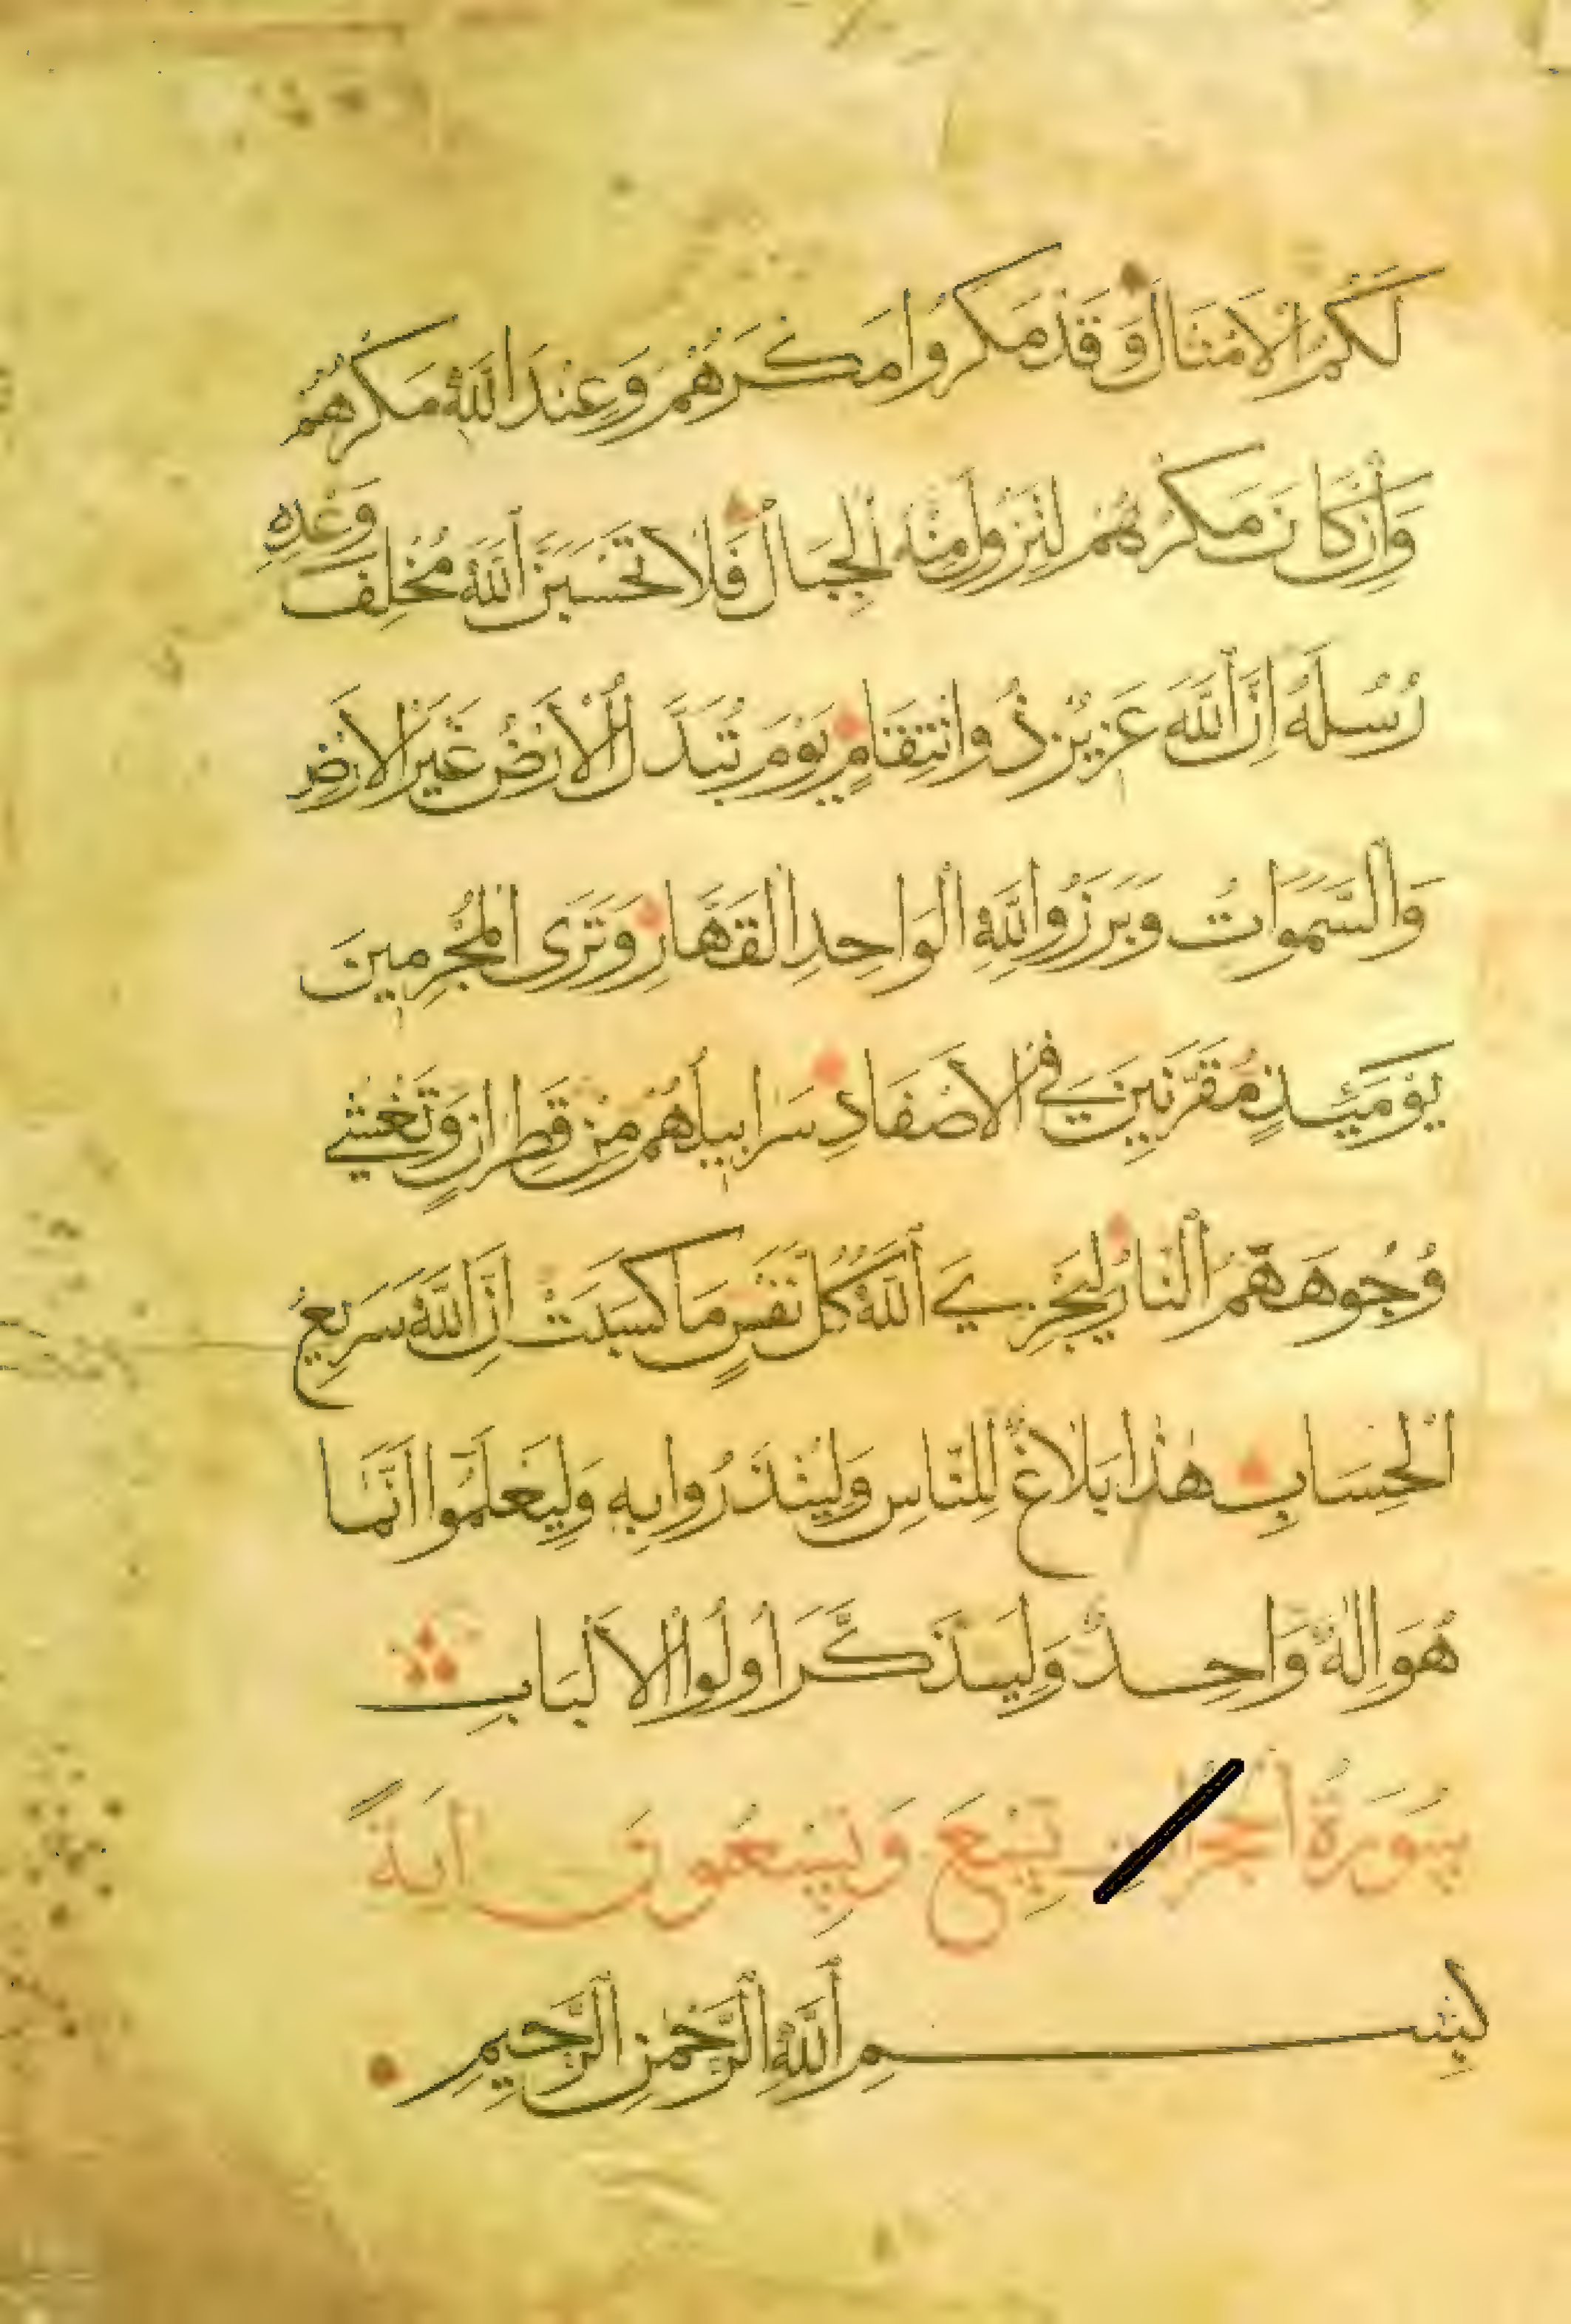 لَكُمُ الْأَمْثَالَ وَقَدْ مَكَرُوا مَكْرَهُمْ وَعِنْدَ اللَّهِ مَكْرُهُمْ
وَإِنْ كَانَ مَكْرُهُمْ لِتَزُولَ مِنْهُ الْجِبَالُ فَلَا تَحْسَبَنَّ اللَّهَ مُخْلِفَ وَعْدِهِ
رُسُلَهُ إِنَّ اللَّهَ عَزِيزٌ ذُو انْتِقَامٍ يَوْمَ تُبَدَّلُ الْأَرْضُ غَيْرَ الْأَرْضِ
وَالسَّمَوَاتُ وَبَرَزُوا لِلَّهِ الْوَاحِدِ الْقَهَّارِ وَتَرَى الْمُجْرِمِينَ
يَوْمَئِذٍ مُقَرَّنِينَ فِي الْأَصْفَادِ سَرَابِيلُهُمْ مِنْ قَطِرَانٍ وَتَغْشَى
وُجُوهَهُمُ النَّارُ لِيَجْزِيَ اللَّهُ كُلَّ نَفْسٍ مَا كَسَبَتْ إِنَّ اللَّهَ سَرِيعُ
الْحِسَابِ هَذَا بَلَاغٌ لِلنَّاسِ وَلِيُنْذَرُوا بِهِ وَلِيَعْلَمُوا أَنَّمَا
هُوَ إِلَهٌ وَاحِدٌ وَلِيَذَّكَّرَ أُولُوا الْأَلْبَابِ
سُورَةُ تِسْعٌ وَتِسْعُونَ آيَةً
بِسْمِ اللَّهِ الرَّحْمَنِ الرَّحِيمِ